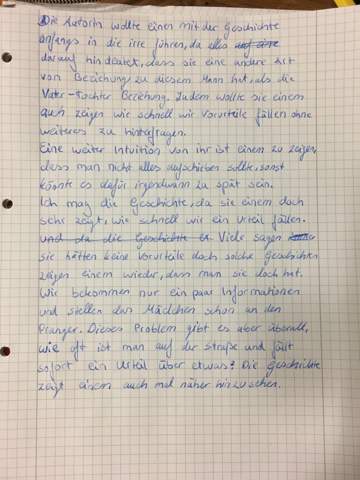 Die Autorin wollte einen mit der Geschichte
anfangs in die irre führen, da alles auf eine
darauf hindeutet, dass sie eine andere Art
von Beziehung zu diesem Mann hat, als die
Vater-Tochter Beziehung. Zudem wollte sie einem
auch zeigen wie schnell wir Vorurteile fällen ohne
weiteres zu hinterfragen.
Eine weiter Intuition von ihr ist einem zu zeigen,
dass man nicht alles aufschieben sollte, sonst
könnte es dafür irgendwann zu spät sein.
Ich mag die Geschichte, da sie einem doch
sehr zeigt, wie schnell wir ein Urteil fällen.
und da die Geschichte Viele sagen
sie hätten keine Vorurteile doch solche Geschichten
zeigen einem wieder, dass man sie doch hat.
Wir bekommen nur ein paar Informationen
und stellen das Mädchen schon an den
Pranger. Dieses Problem gibt es aber überall,
wie oft ist man auf der straße und fällt
sofort ein Urteil über etwas? Die Geschichte
zeigt einem auch mal näher hinzusehen.